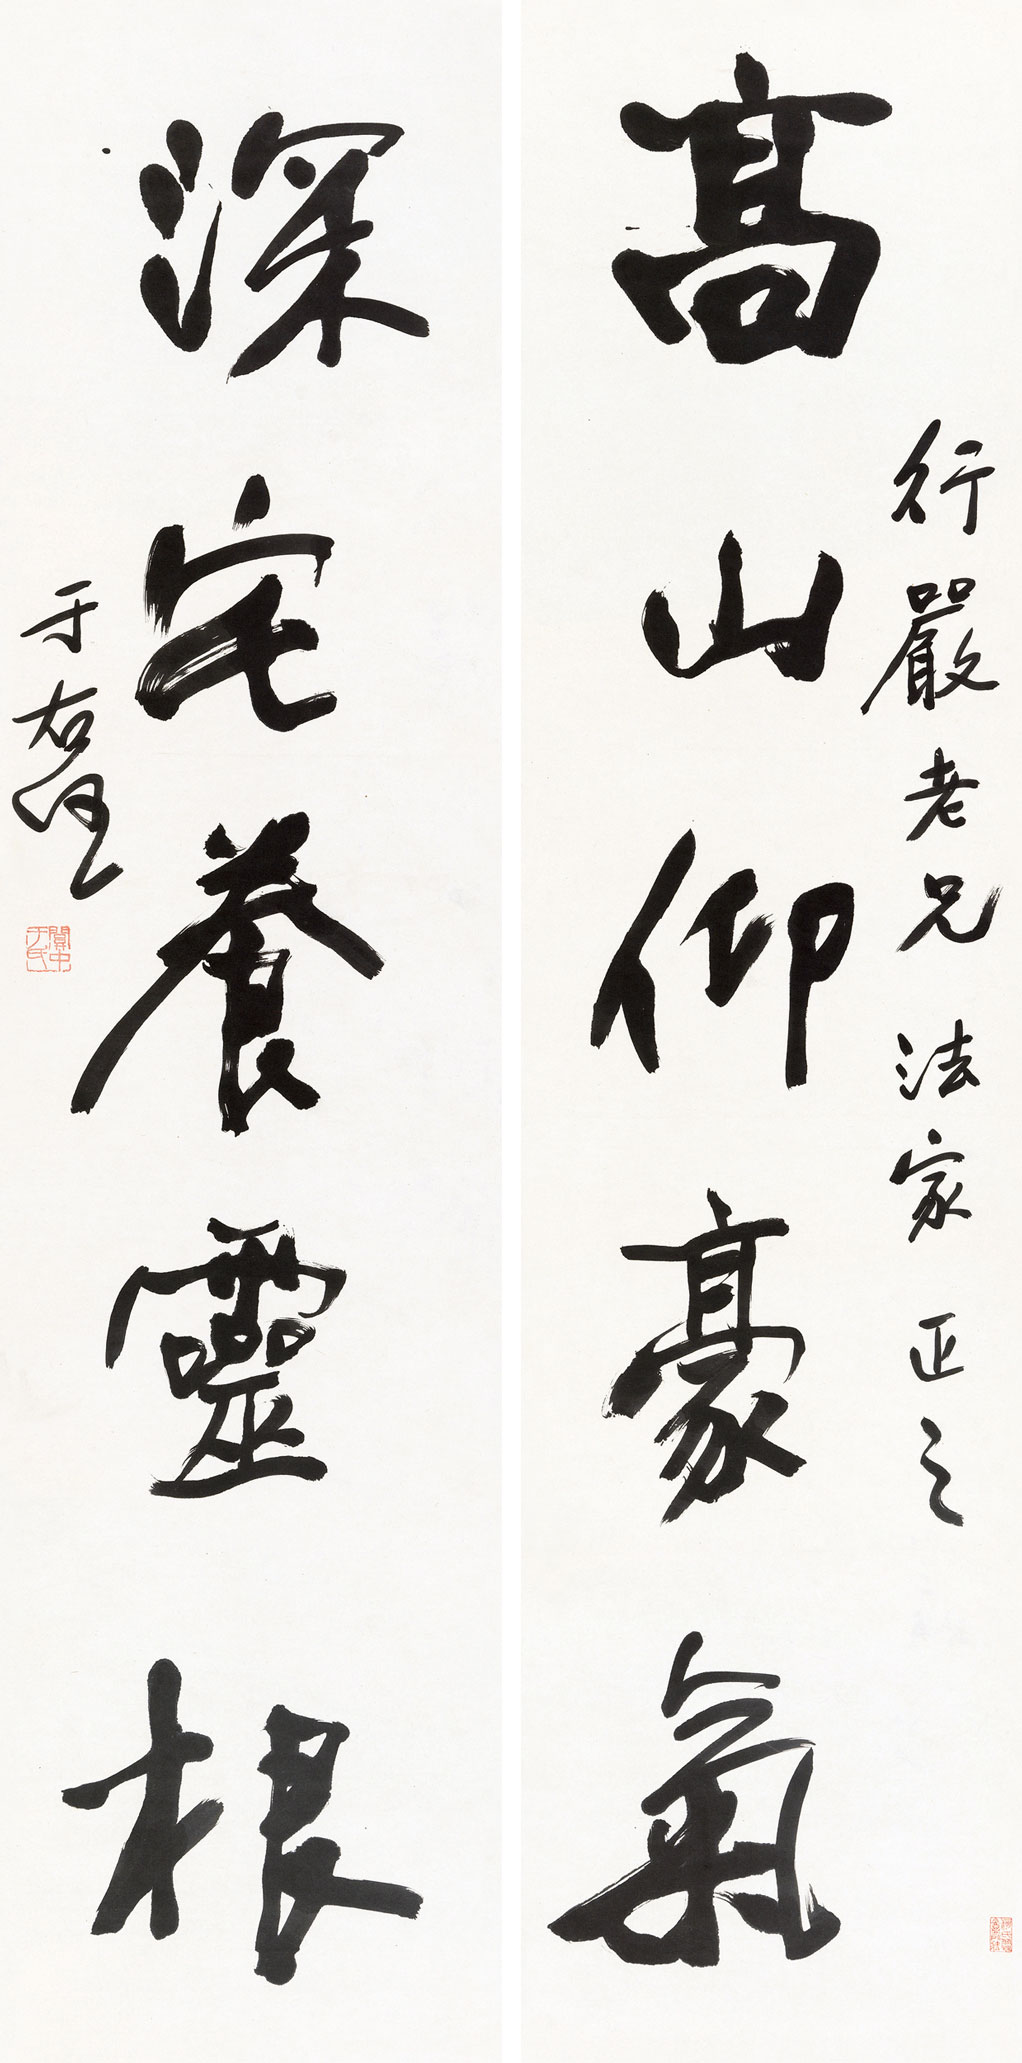 高山仰豪氣
行嚴老兄法家正之
深宅養靈根
于右任
關中于氏